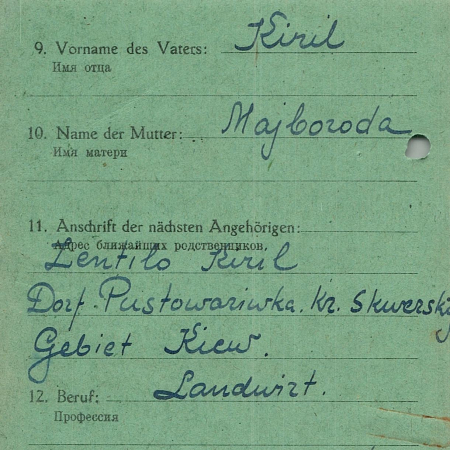 9. Vorname des Vaters: Kiril
Имя отца
10. Name der Mutter: Majboroda
Имя матери
11. Anschrift der nächsten Angehörigen:
Адрес ближайших родственников,
Zentilo Kiril
Dorf-Pustowariwka. Kr. Skwersky
Gebiet Kiew.
12. Beruf: Landwirt.
Профессия